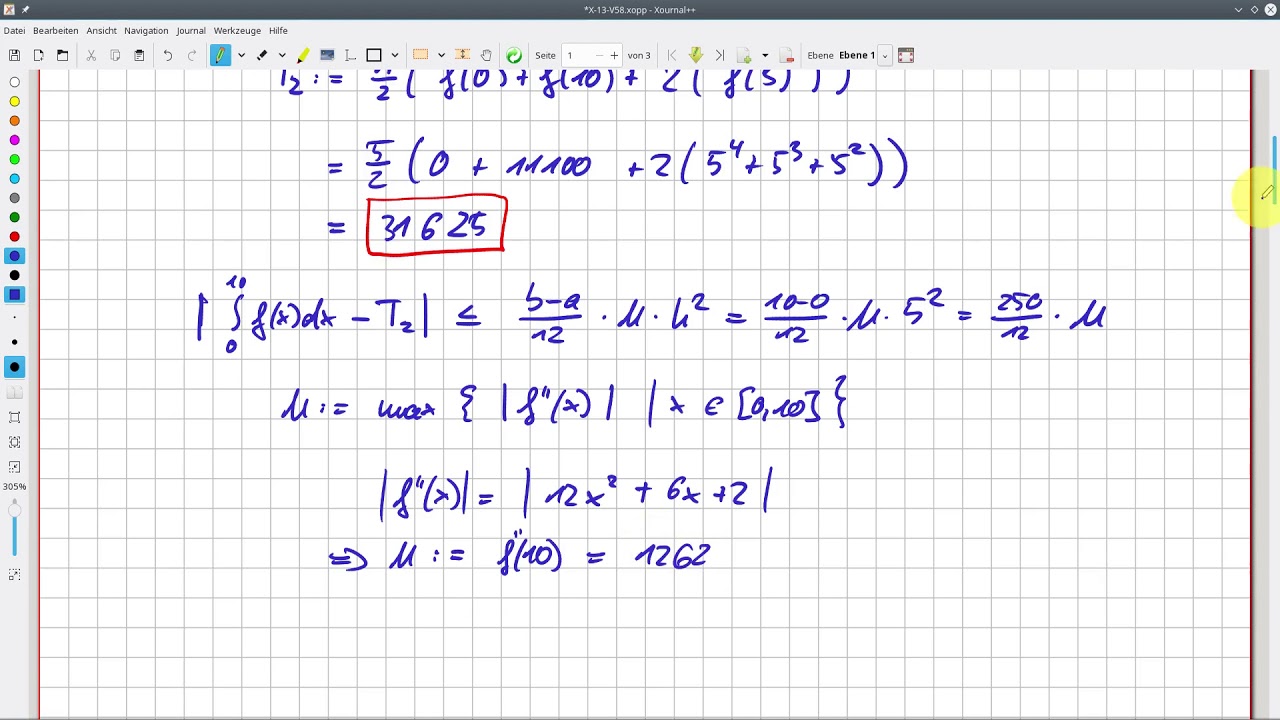 *X-13-V58.xopp - Xournal++
Datei Bearbeiten Ansicht Navigation Journal Werkzeuge Hilfe
Seite 1 von 3 Ebene Ebene 1
T₂ := 5/2 ( f(0) + f(10) + 2 ( f(5) ) )
= 5/2 ( 0 + 11100 + 2 ( 5⁴ + 5³ + 5² ) )
= 31625
| ∫₀¹⁰ f(x)dx - T₂ | ≤ (b-a)/12 · M · h² = (10-0)/12 · M · 5² = 250/12 · M
M := max { |f''(x)| | x ∈ [0,10] }
|f''(x)| = | 12x² + 6x + 2 |
⇒ M := f''(10) = 1262
305%